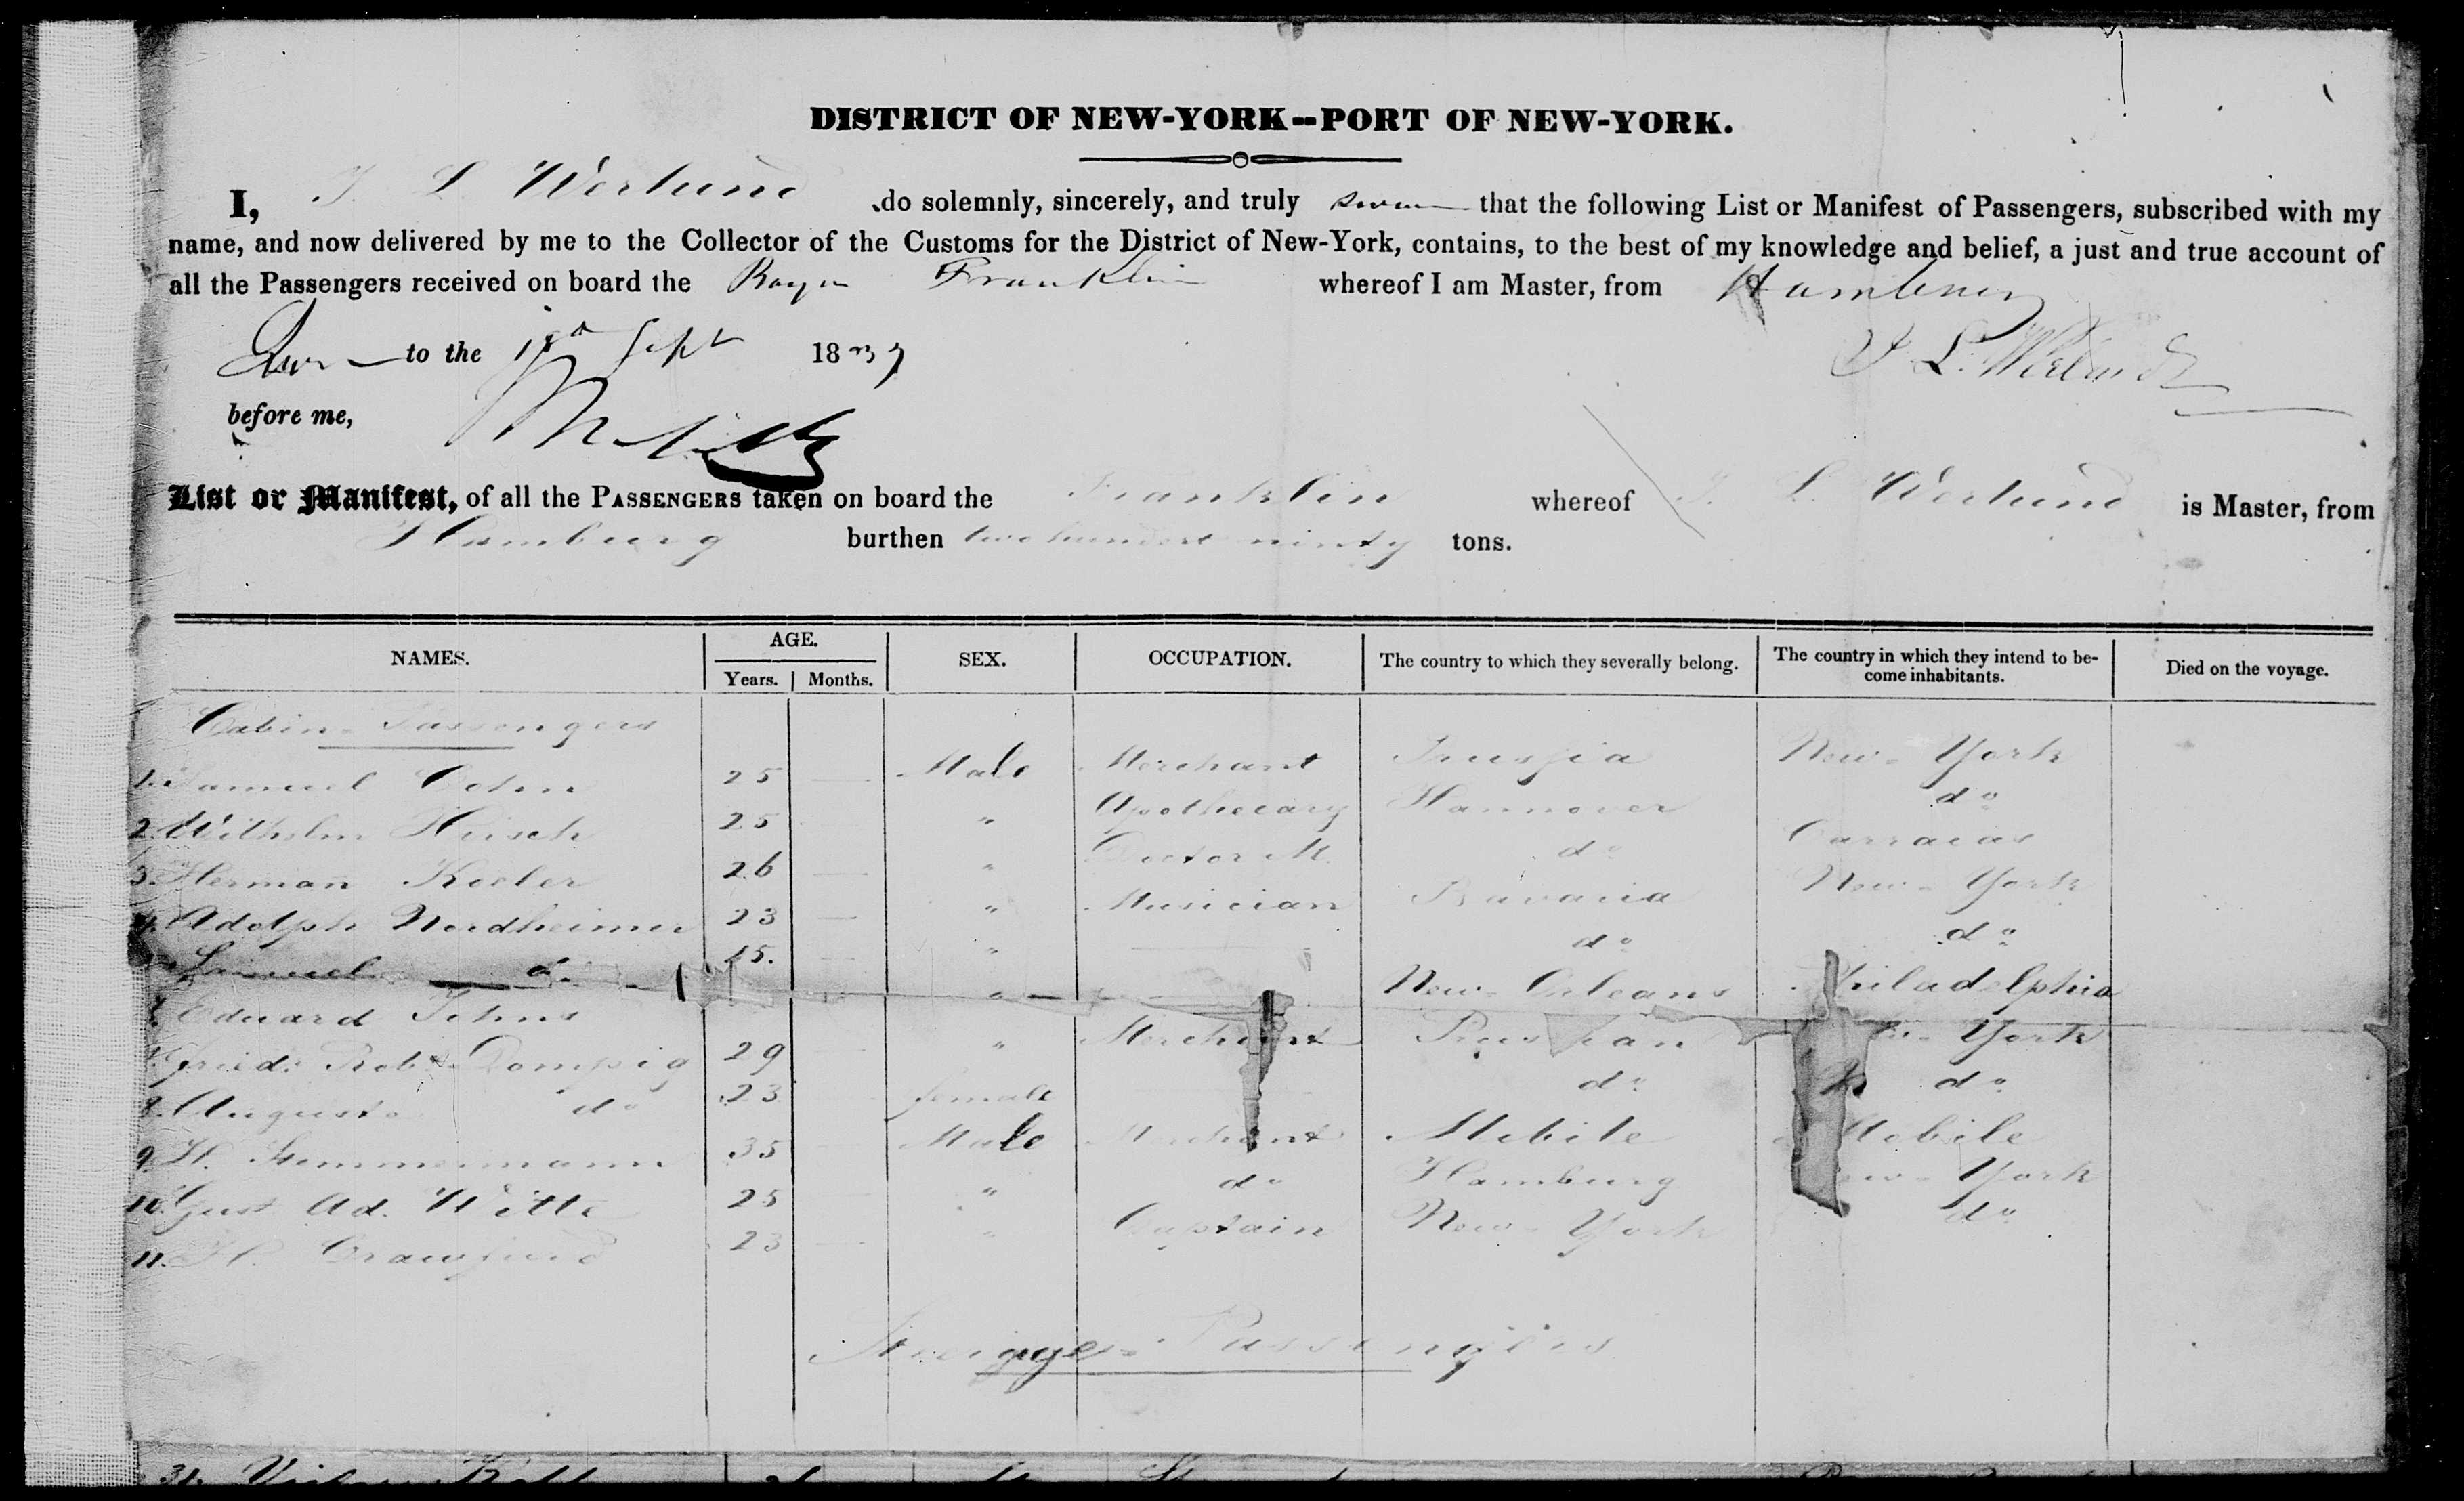 DISTRICT OF NEW-YORK--PORT OF NEW-YORK.
I, L Werlund do solemnly, sincerely, and truly swear that the following List or Manifest of Passengers, subscribed with my
name, and now delivered by me to the Collector of the Customs for the District of New-York, contains, to the best of my knowledge and belief, a just and true account of
all the Passengers received on board the Franklin whereof I am Master, from Hamburg
to the 18th Sept 1837
L. Werlund
before me,
List or Manifest, of all the PASSENGERS taken on board the Franklin whereof L Werlund is Master, from
Hamburg burthen two hundert ninty tons.
NAMES. AGE. Years. Months. SEX. OCCUPATION. The country to which they severally belong. The country in which they intend to become inhabitants. Died on the voyage.
Cabin-Passengers
1. Samuel Cohn 25 — Male Merchant Prussia New-York
2. Wilhelm Hirsch 25 — " Apothecary Hannover do
3. Herman 26 — " Doctor M. do Carracas
4. Adolph Nordheimer 23 — " Musician Bavaria New-York
Samuel do 15. — " do do
Eduard Johns " New-Orleans Philadelphia
Friedr. Robt. 29 — " Merchant Prussian York
8. Augusta do 23 female do do
9. H. 35 Male Merchant Mobile Mobile
10. Gust Ad. Witte 25 " do Hamburg York
11. H. Crawfurd 23 " Captain New-York do
Steerage-Passengers
31.